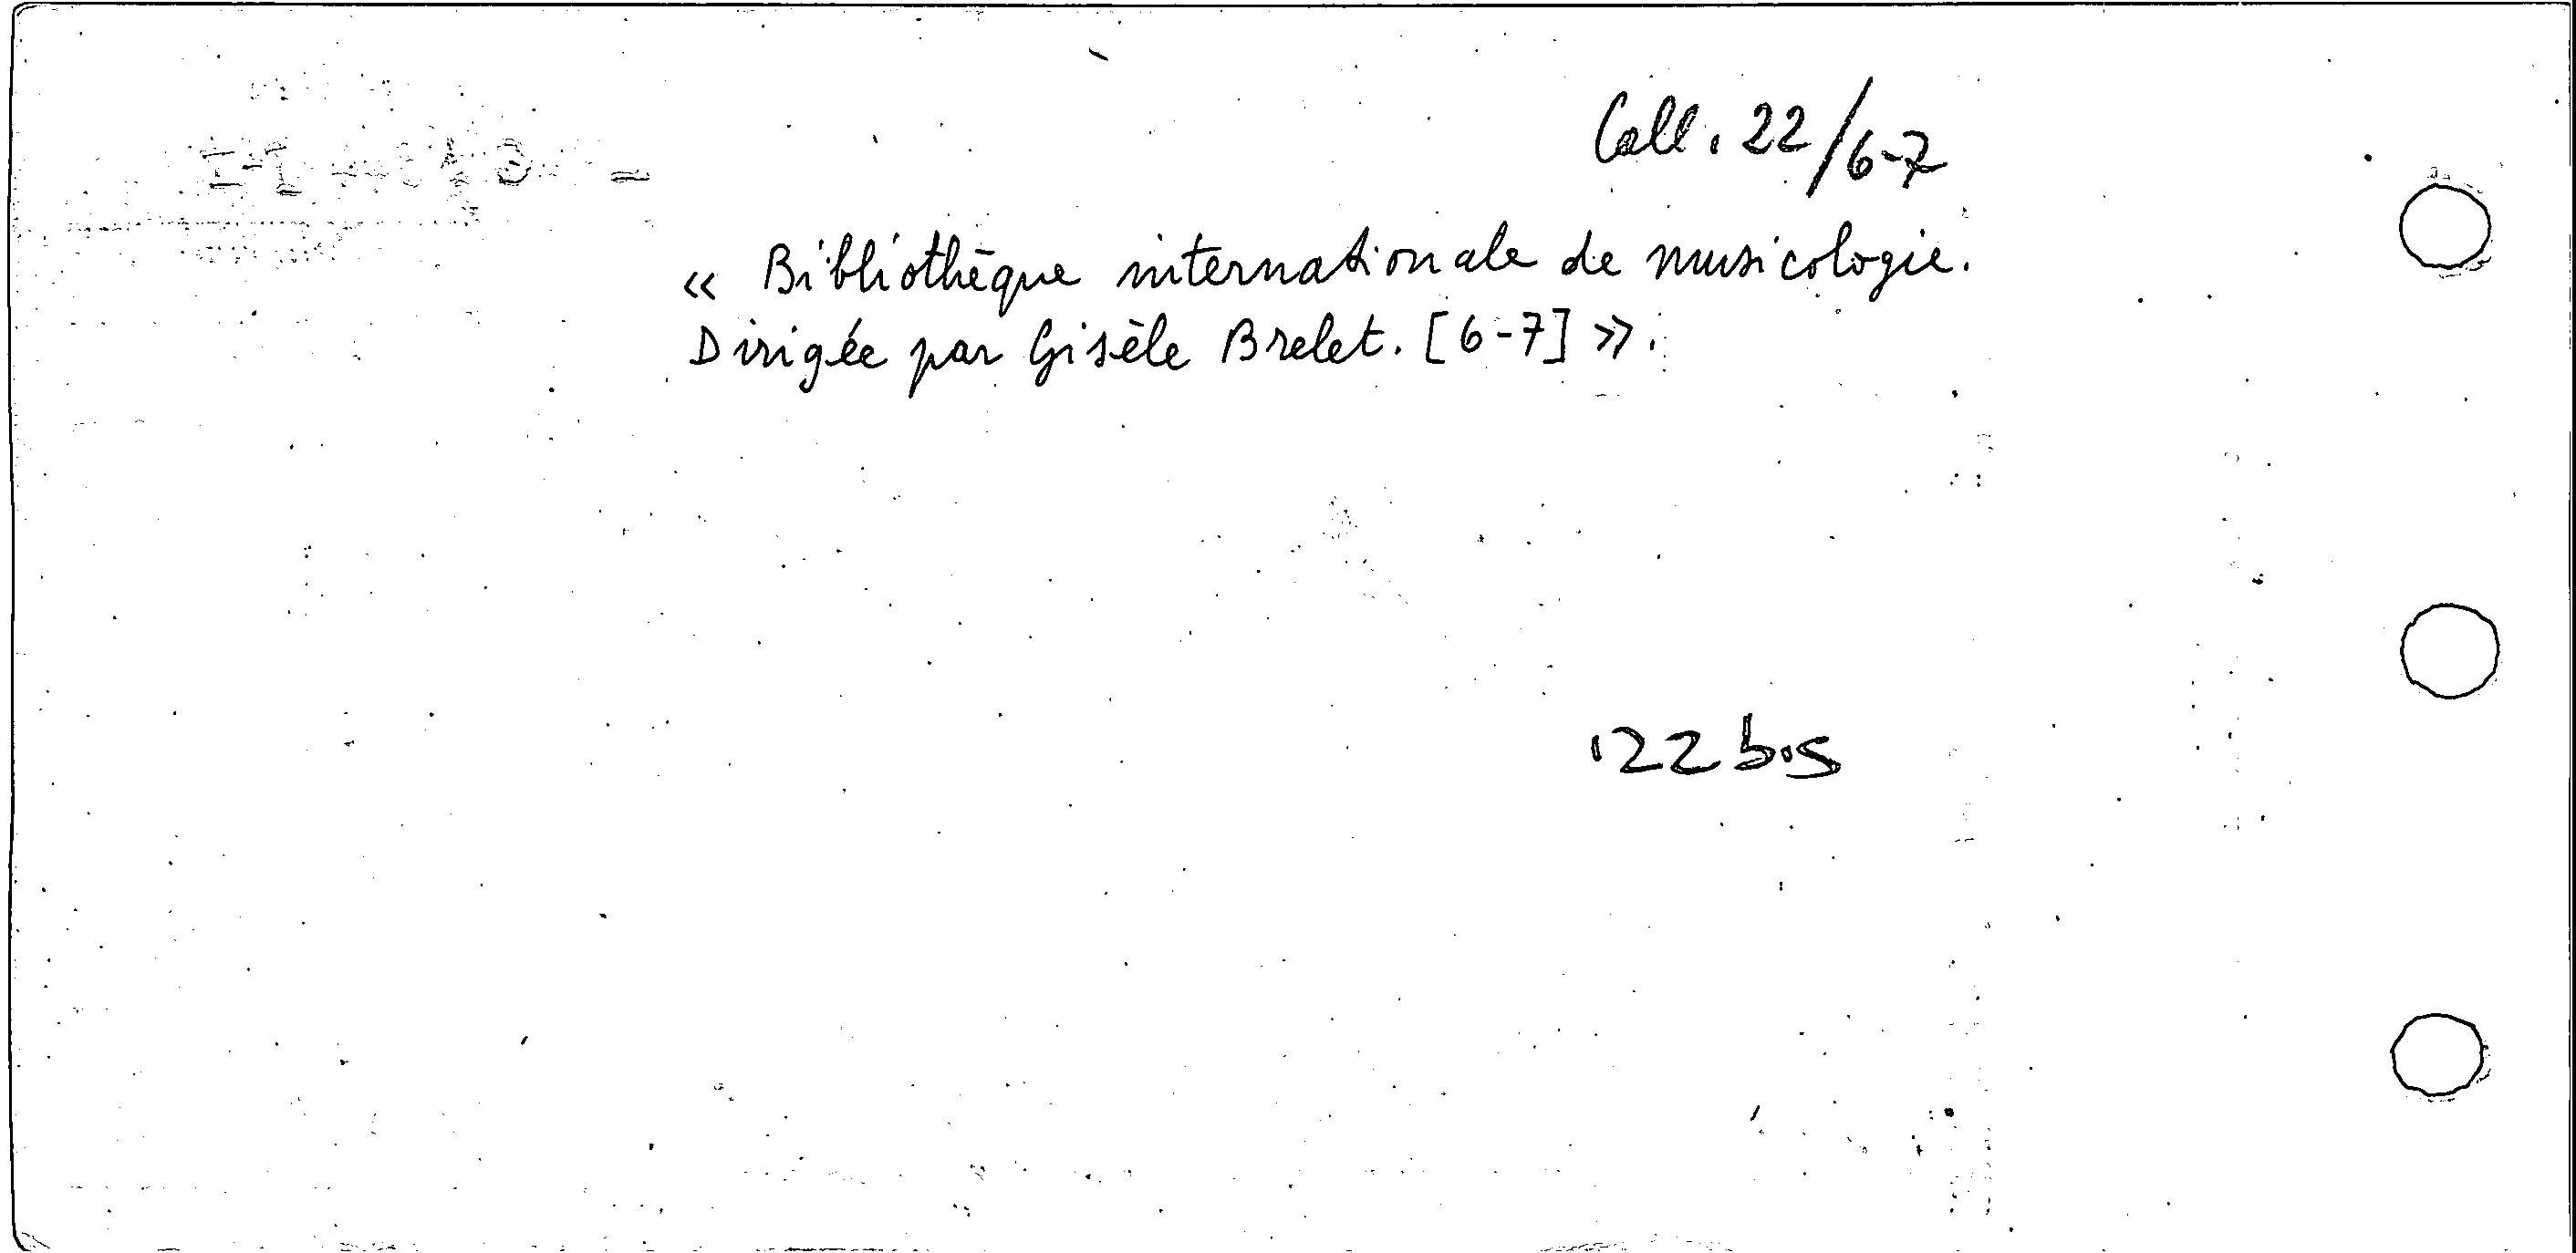 Coll. 22/6-7
« Bibliothèque internationale de musicologie.
Dirigée par Gisèle Brelet. [6-7] ».
22 bis